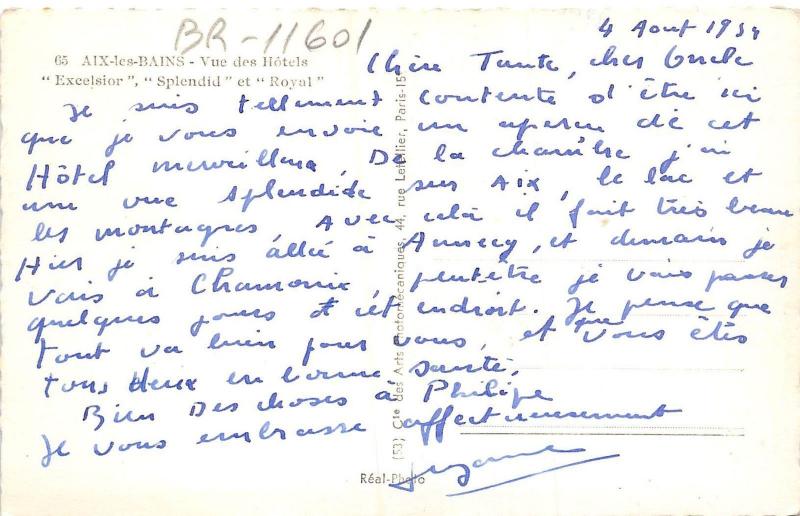 BR-11601
65 AIX-les-BAINS - Vue des Hôtels
"Excelsior", "Splendid" et "Royal"
4 Aout 195
Chère Tante, cher Oncle
Je suis tellement contente d'être ici
que je vous envoie un apercu de cet
Hôtel merveilleux, De la chambre j'ai
une vue splendide sur Aix, le lac et
les montagnes, Avec celà il fait très beau
Hier je suis allée à Annecy, et demain je
vais à Chamonix, peutêtre je vais passer
quelques jours à cet endroit. Je pense que
tout va bien pour vous, et que vous êtes
tous deux en bonne santé,
Bien des choses à Philipe
Je vous embrasse affectueusement
Suzanne
(53) Cie des Arts Photomécaniques, 44, rue Letellier, Paris-15e
Réal-Photo